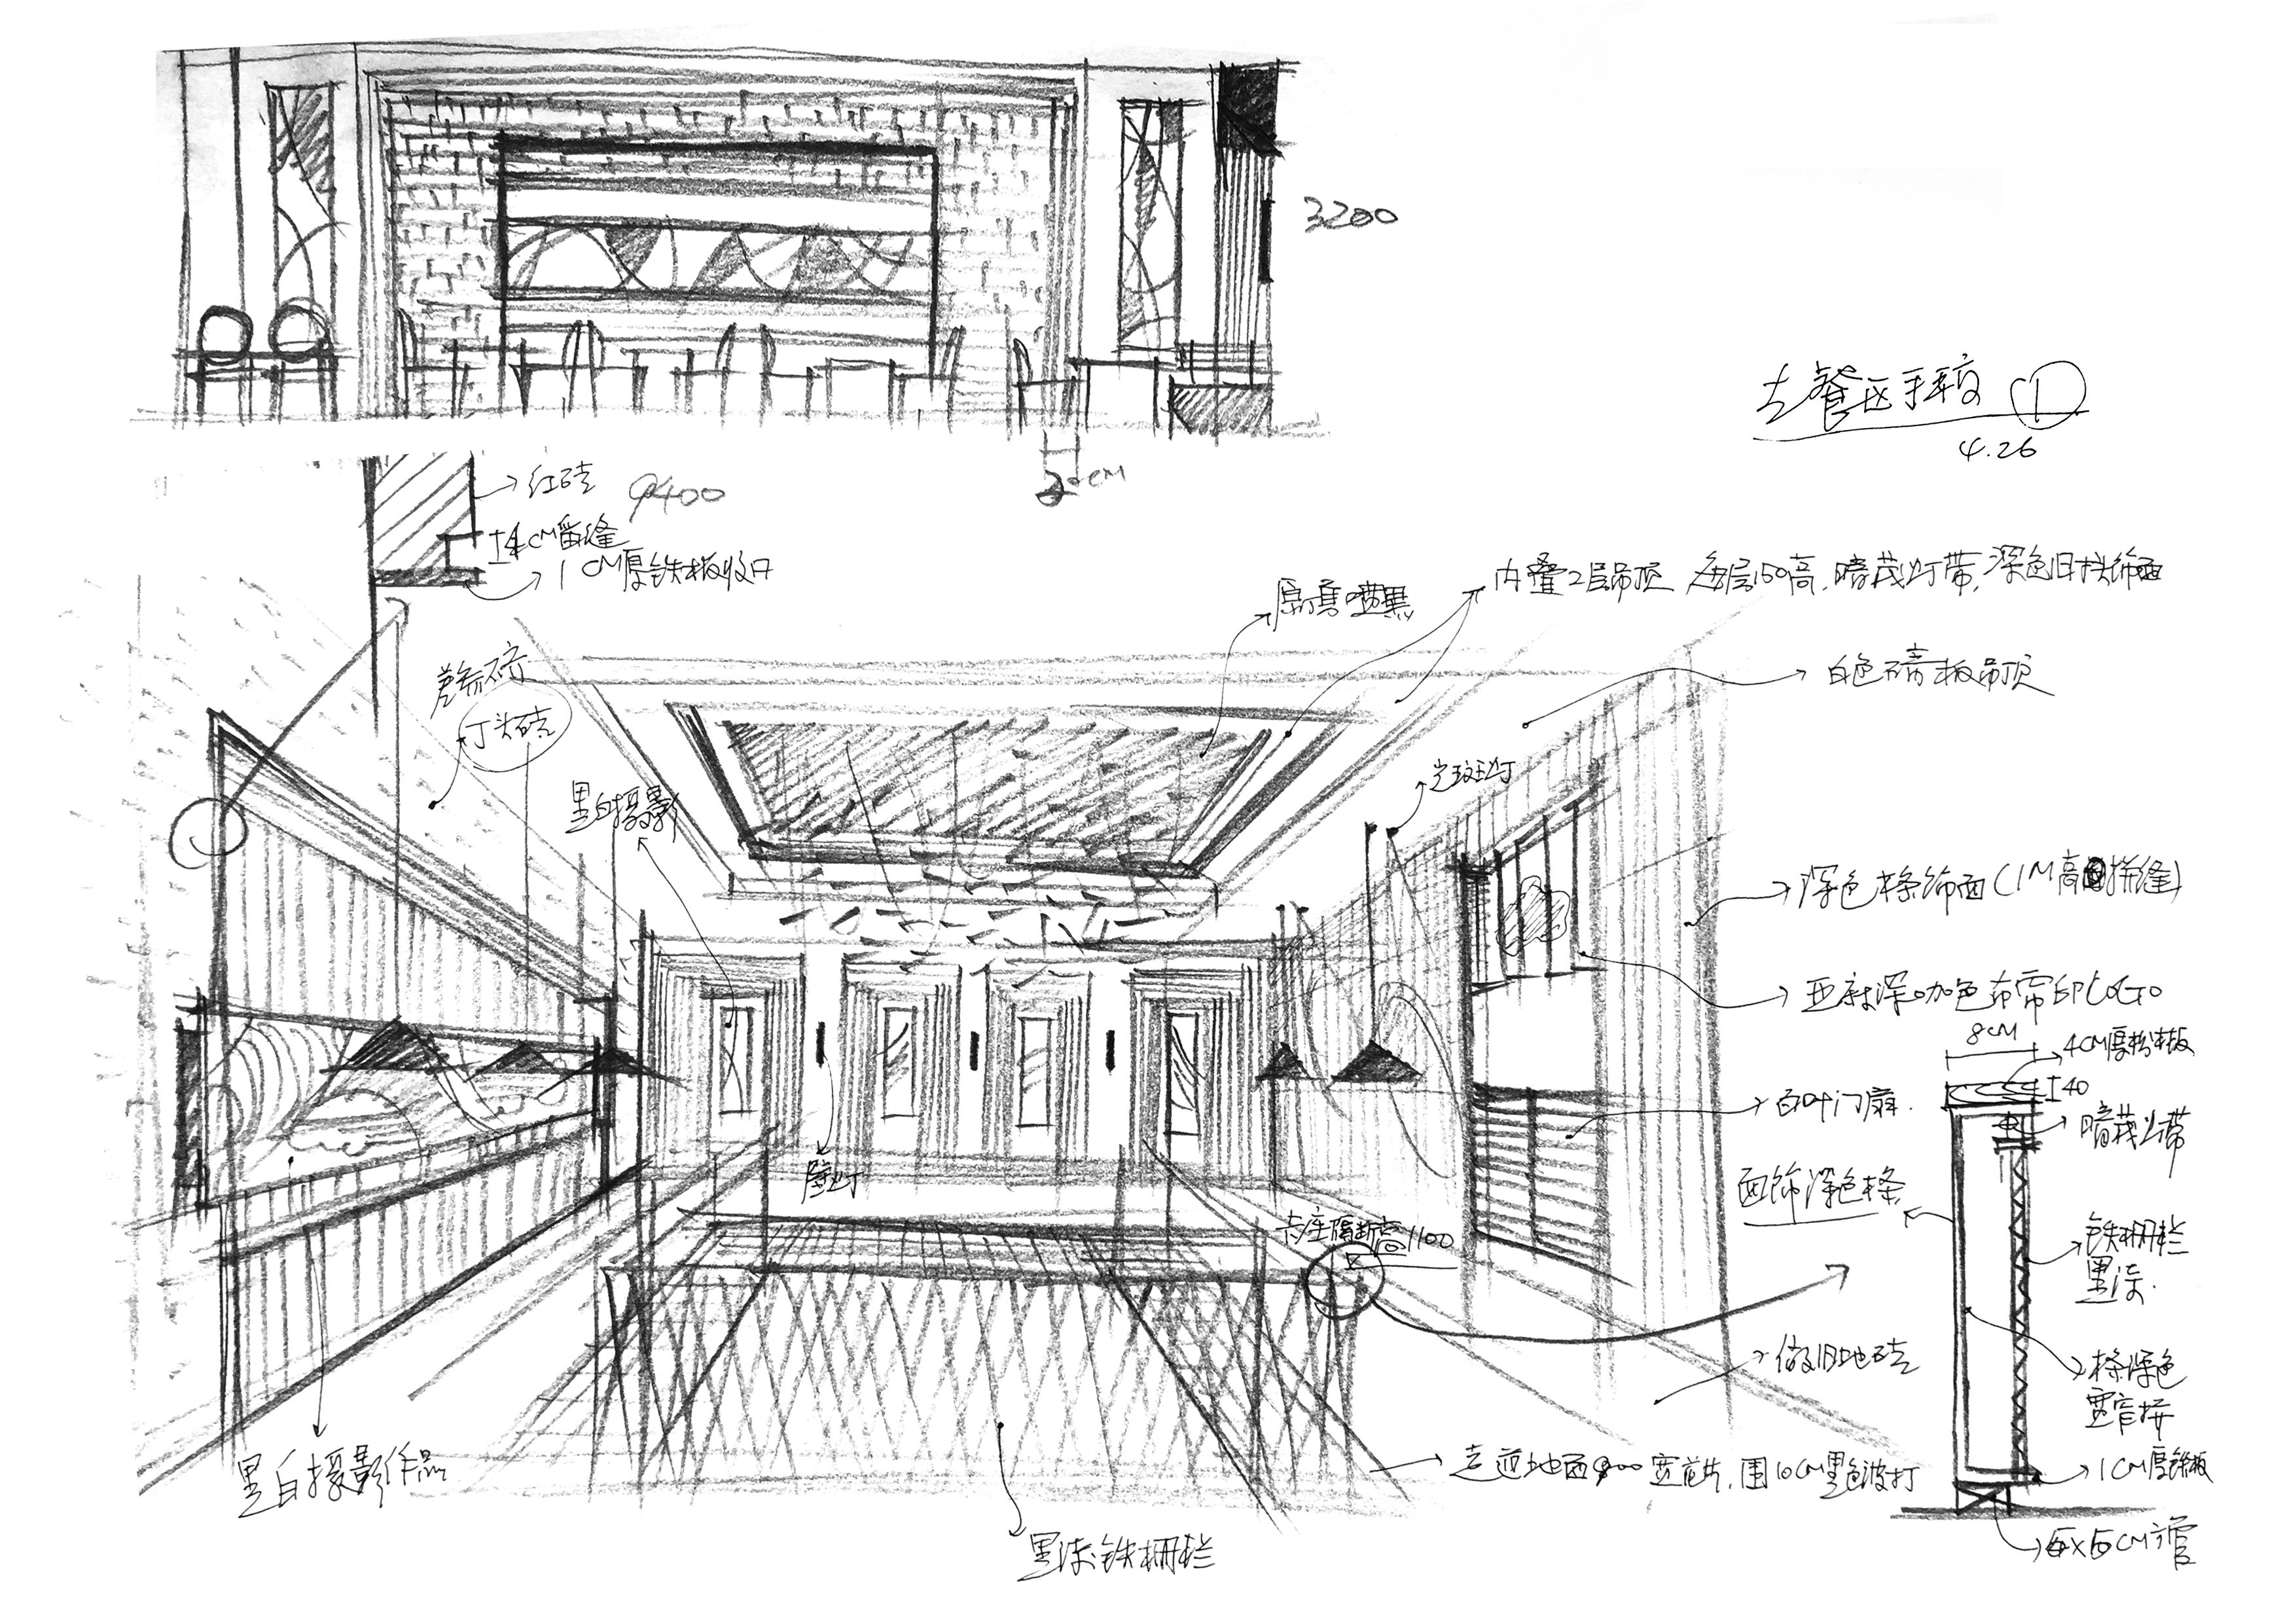 3200
餐区手稿 ①
4.26
2CM
红砖
9400
CM留缝
1CM厚铁板收口
原顶喷黑
内叠2层吊顶 每层150高,暗藏灯带,深色旧木饰面
白色石膏板吊顶
参差不齐
丁头砖
黑白摄影
光斑灯
深色木条饰面(1M高 拼缝)
亚麻深咖色布帘印LOGO
8CM
4CM厚松木板
40
百叶门扇
暗藏灯带
面饰深色木条
壁灯
铁栅栏
黑漆
卡座隔断高1100
做旧地砖
木条深色
宽窄接
黑白摄影作品
走道地面 00宽花片,围10CM黑色波打
1CM厚铁板
黑漆铁栅栏
5×5CM方管